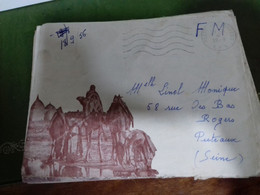 18 9 56
F M
Mlle Linol Monique
58 rue Des Bas
Rogers
Puteaux
(Seine)